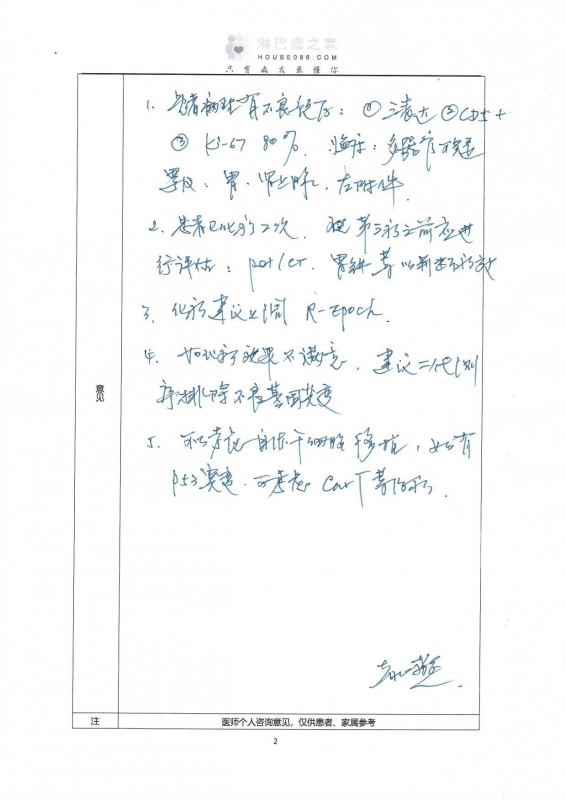 淋巴瘤之家
HOUSE086.COM
只有病友最懂你
1. 患者病理有不良预后：① 三表达 ② CD5+
③ Ki-67 90%. 临床：多器官
累及：胃、肾上腺、左附件.
2. 患者已化疗2次. 在第三疗之前应进
行评估：pet/CT. 胃镜等以判断疗效
3. 化疗建议 R-Epoch.
4. 如化疗效果不满意，建议二代测
序排除不良基因突变
5. 可以考虑自体干细胞移植，如有
p53突变. 可考虑 CarT 等治疗.
意见
注
医师个人咨询意见，仅供患者、家属参考
2